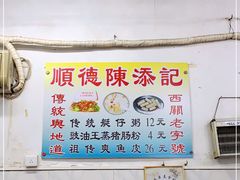 順德陳添記
傳統與地道
西關老字號
传统艇仔粥 12元
豉油王蒸猪肠粉 4元
祖传爽鱼皮 26元